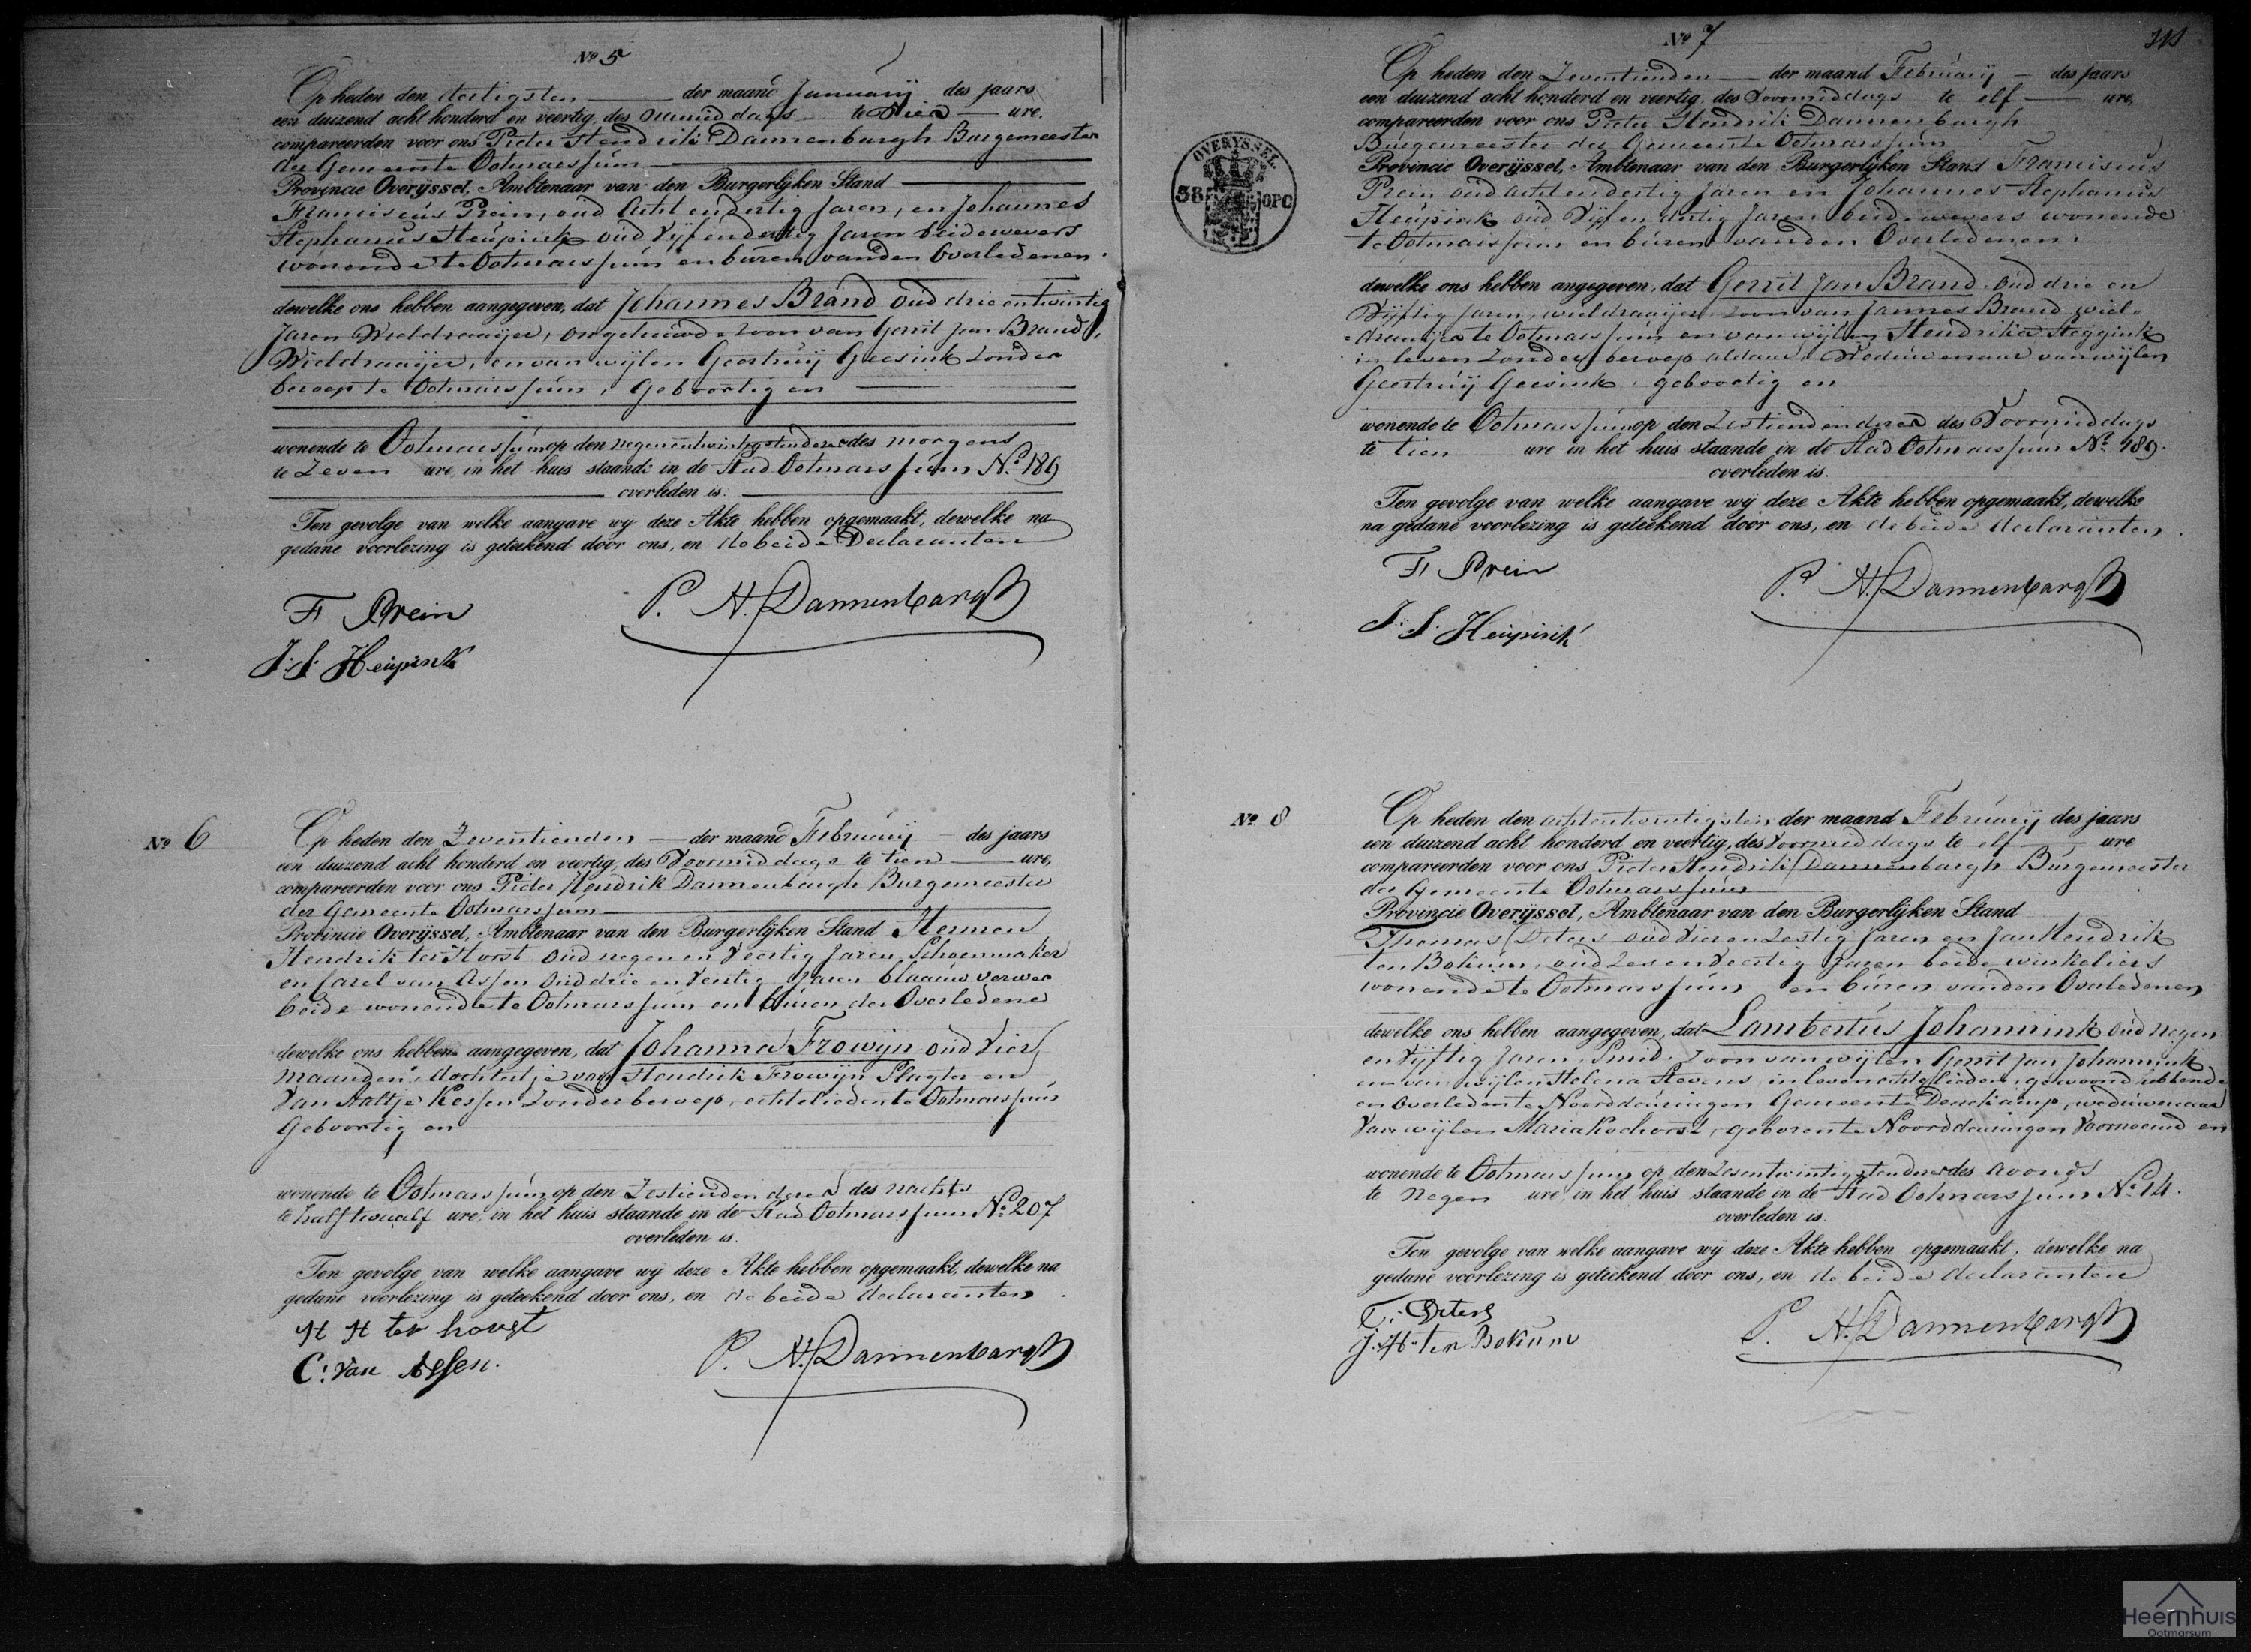 No 5
Op heden den dertigsten der maand Januarij des jaars
een duizend acht honderd en veertig, des namiddags te vier ure,
compareerden voor ons Pieter Hendrik Dannenbargh Burgemeester
der Gemeente Ootmarssum
Provincie Overijssel, Ambtenaar van den Burgerlijken Stand
Franciscus Prein, oud acht en dertig Jaren, en Johannes
Stephanus Heupink oud vijf en dertig Jaren beide wevers
wonende te Ootmarssum en buren van den Overledenen.
dewelke ons hebben aangegeven, dat Johannes Brand oud drie en twintig
Jaren Wieldraaijer, ongehuwde zoon van Gerrit Jan Brand,
Wieldraaijer, en van wijlen Geertruij Geesink zonder
beroep te Ootmarssum, Geboortig en
wonende te Ootmarssum op den negenentwintigsten dezer des morgens
te Zeven ure, in het huis staande in de Stad Ootmarssum No 189
overleden is.
Ten gevolge van welke aangave wij deze Akte hebben opgemaakt, dewelke na
gedane voorlezing is geteekend door ons, en de beide Declaranten
F Prein
P. H. Dannenbargh
J. S. Heupink
No 6
Op heden den Zeventienden der maand Februarij des jaars
een duizend acht honderd en veertig, des Voormiddags te tien ure,
compareerden voor ons Pieter Hendrik Dannenbargh Burgemeester
der Gemeente Ootmarssum
Provincie Overijssel, Ambtenaar van den Burgerlijken Stand Hermen
Hendrik ter Horst oud negen en Veertig Jaren Schoenmaker
en Carel van Assen oud drie en Jaren blaauwverwer
beide wonende te Ootmarssum en buren der Overledene
dewelke ons hebben aangegeven, dat Johanna Frowijn oud Vier
maanden, dochtertje van Hendrik Frowijn Slagter en
Van Aaltje Kessen zonder beroep, echtelieden te Ootmarssum
Geboortig en
wonende te Ootmarssum op den Zestienden dezer des nachts
te half twaalf ure, in het huis staande in de Stad Ootmarssum No 207
overleden is.
Ten gevolge van welke aangave wij deze Akte hebben opgemaakt, dewelke na
gedane voorlezing is geteekend door ons, en de beide declaranten.
H H ter horst
C. van Assen.
P. H. Dannenbargh
No 7
Op heden den Zeventienden der maand Februarij des jaars
een duizend acht honderd en veertig, des Voormiddags te elf ure,
compareerden voor ons Pieter Hendrik Dannenbargh
Burgemeester der Gemeente Ootmarssum
Provincie Overijssel, Ambtenaar van den Burgerlijken Stand Franciscus
Prein oud acht en dertig Jaren en Johannes Stephanus
Heupink oud Vijf en dertig Jaren beide wevers wonende
te Ootmarssum en buren van den Overledenen.
OVERYSSEL
38 OPC
dewelke ons hebben angegeven, dat Gerrit Jan Brand oud drie en
Vijftig Jaren, wieldraaijer, zoon van Jannes Brand wiel-
draaijer te Ootmarssum en van wijlen Hendrika Heggink
in leven zonder beroep aldaar, Weduwenaar van wijlen
Geertruij Geesink, geboortig en
wonende te Ootmarssum op den Zestienden dezer des Voormiddags
te tien ure in het huis staande in de Stad Ootmarssum No 189.
overleden is.
Ten gevolge van welke aangave wij deze Akte hebben opgemaakt, dewelke
na gedane voorlezing is geteekend door ons, en de beide declaranten.
F Prein
P. H. Dannenbargh
J. S. Heupink
No 8
Op heden den achtentwintigsten der maand Februarij des jaars
een duizend acht honderd en veertig, des Voormiddags te elf ure
compareerden voor ons Pieter Hendrik Dannenbargh Burgemeester
der Gemeente Ootmarssum
Provincie Overijssel, Ambtenaar van den Burgerlijken Stand
Thomas Deters oud Vier en Zestig Jaren en Jan Hendrik
ten Bokum, oud Zes en Veertig Jaren beide winkeliers
wonende te Ootmarssum en buren van den Overledenen
dewelke ons hebben aangegeven, dat Lambertus Johannink oud negen
en Vijftig Jaren, Smid, zoon van wijlen Gerrit Jan Johannink
en van wijlen Helena Stevens in leven echtelieden, gewoond hebbende
en Overleden te Noorddeuringen Gemeente Denekamp, weduwenaar
Van wijlen Maria Kochorst, geboren te Noorddeuringen Voornoemd en
wonende te Ootmarssum op den Zesentwintigsten dezer des avonds
te Negen ure, in het huis staande in de Stad Ootmarssum No 14.
overleden is.
Ten gevolge van welke aangave wij deze Akte hebben opgemaakt, dewelke na
gedane voorlezing is geteekend door ons, en de beide declaranten
T. Deters
J. H. ten Bokum
P. H. Dannenbargh
Heemhuis
Ootmarsum